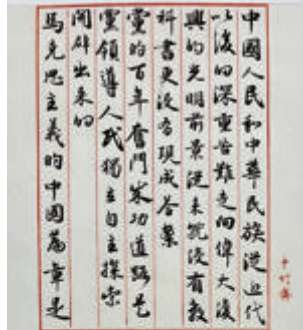 中國人民和中華民族從近代
以後的深重苦難走向偉大復
興的光明前景從未就沒有教
科書更沒有現成答案
黨的百年奮鬥成功道路是
黨領導人民獨立自主探索
開辟出來的
馬克思主義的中國篇章是